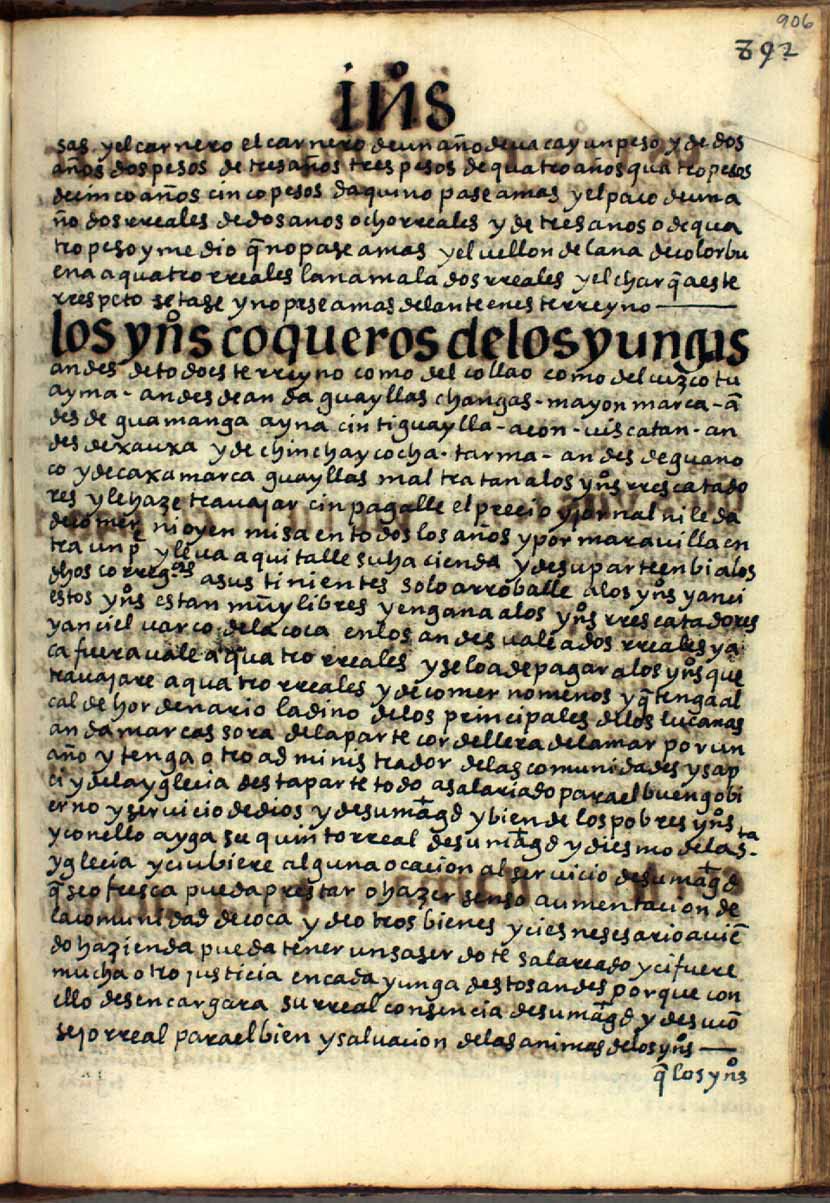 906
892
ynos
sas y el carnero el carnero de un año de uacay un peso y de dos
años dos pesos de tres años tres pesos de quatro años quatro pesos
de cinco años cinco pesos da qui no pase a mas y el paco de un a
ño dos rreales de dos anos ocho rreales y de tres anos o de qua
tro peso y medio q̃ no pase a mas y el uellon de lana de color bu
ena a quatro rreales lana mala dos rreales y el charq̃ a este
rrespeto se tase y no pase a mas delante en este rreyno
los yn̊s coqueros de los yungas
andes de todo este rreyno como del collao como del cuzco tu
ayma - andes de andaguayllas changas - mayonmarca - ā
des de guamanga ayna cintiguaylla - aeon - uiscatan - an
des de xauxa y de chinchaycocha - tarma - andes de guano
co y de caxamarca guayllas maltratan a los yn̊s rrescatado
res y le haze trauajar cin pagalle el precio y jornal ni le da
de comer ni oyen misa en todos los años y por marauilla en
tra un p̃ y lleua a quitalle su hacienda y de su parte enbia los
dhos correg.es a sus tinientes solo a rroballe a los yn̊s y anci
estos yn̊s estan muy libres y engana a los yn̊s rrescatadores
y anci el uarco de la coca en los andes uale a dos rreales y a
ca fuera uale a quatro rreales y se lo a de pagar a los yn̊s que
trauajare a quatro rreales y de comer no menos y q̃ tenga al
cal de hordenario ladino de los principales de los lucanas
andamarcas sora de la parte cordellera de la mar por un
año y tenga otro administrador de las comunidades y sap
ci y de la yglecia desta parte todo asalariado para el buen gobi
erno y seruicio de dios y de su mag̃d y bien de los pobres yn̊s
y con ello ayga su quinto rreal de su mag̃d y diesmo de la s.ta
yglecia y ci ubiere alguna ocacion al seruicio de su mag̃d
q̃ se ofresca pueda prestar o hazer senso aumentacion de
la comunidad de coca y de otros bienes y ci es nesesario auiē
do hazienda pueda tener un saserdote salareado y ci fuere
mucha otro justicia en cada yunga destos andes porque con
ello desencargara su rreal consencia de su mag̃d y de su cõ
sejo rreal para el bien y saluacion de las animas de los yn̊s
q̃ los yn̊s